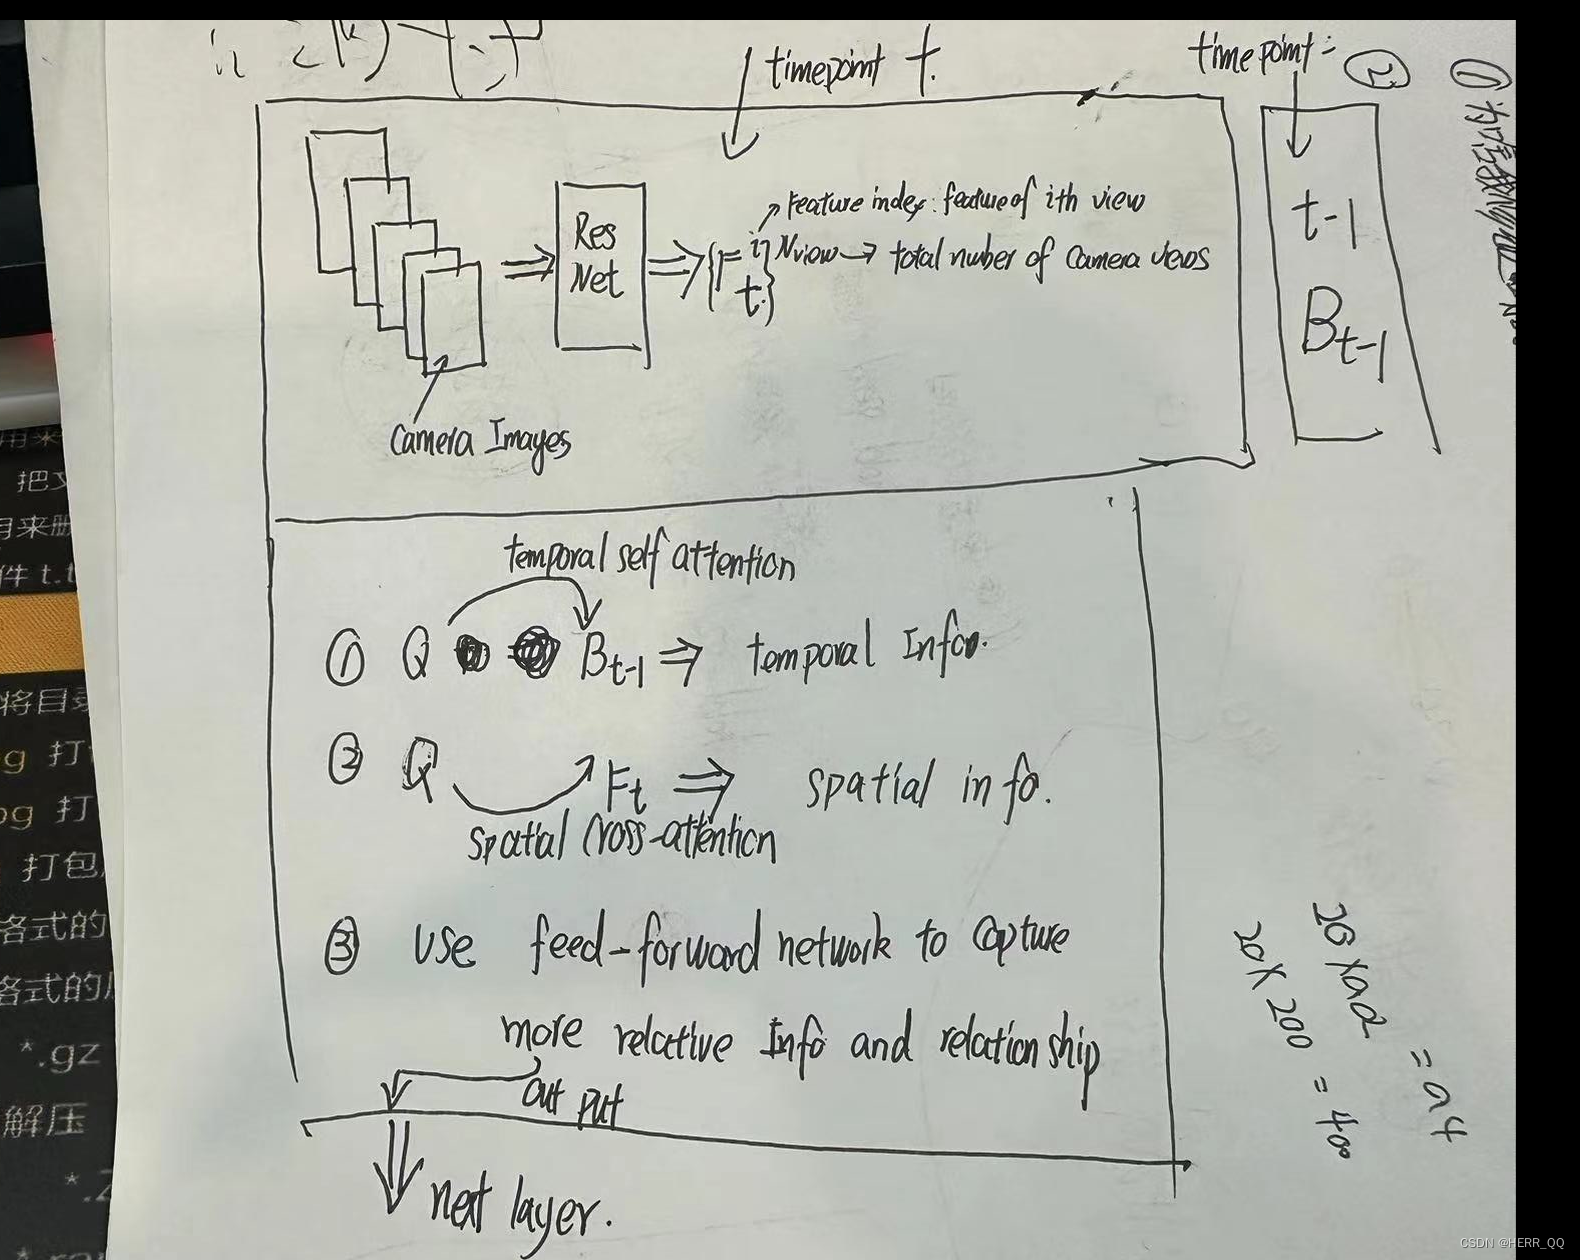 timepoint t.
timepoint: ②
①
t-1
B t-1
Res
Net
Feature index: feature of ith view
{F i t} Nview → total number of Camera views
Camera Images
temporal self attention
① Q B t-1 ⇒ temporal Info.
② Q Ft ⇒ spatial info.
spatial Cross-attention
③ use feed-forward network to Capture
more relative Info and relationship
out put
next layer.
20X200
用来
把文
用来删
件 t.t
将目录
g 打
og 打
打包
格式的
格式的
*.gz
解压
*.Z
CSDN @HERR_QQ